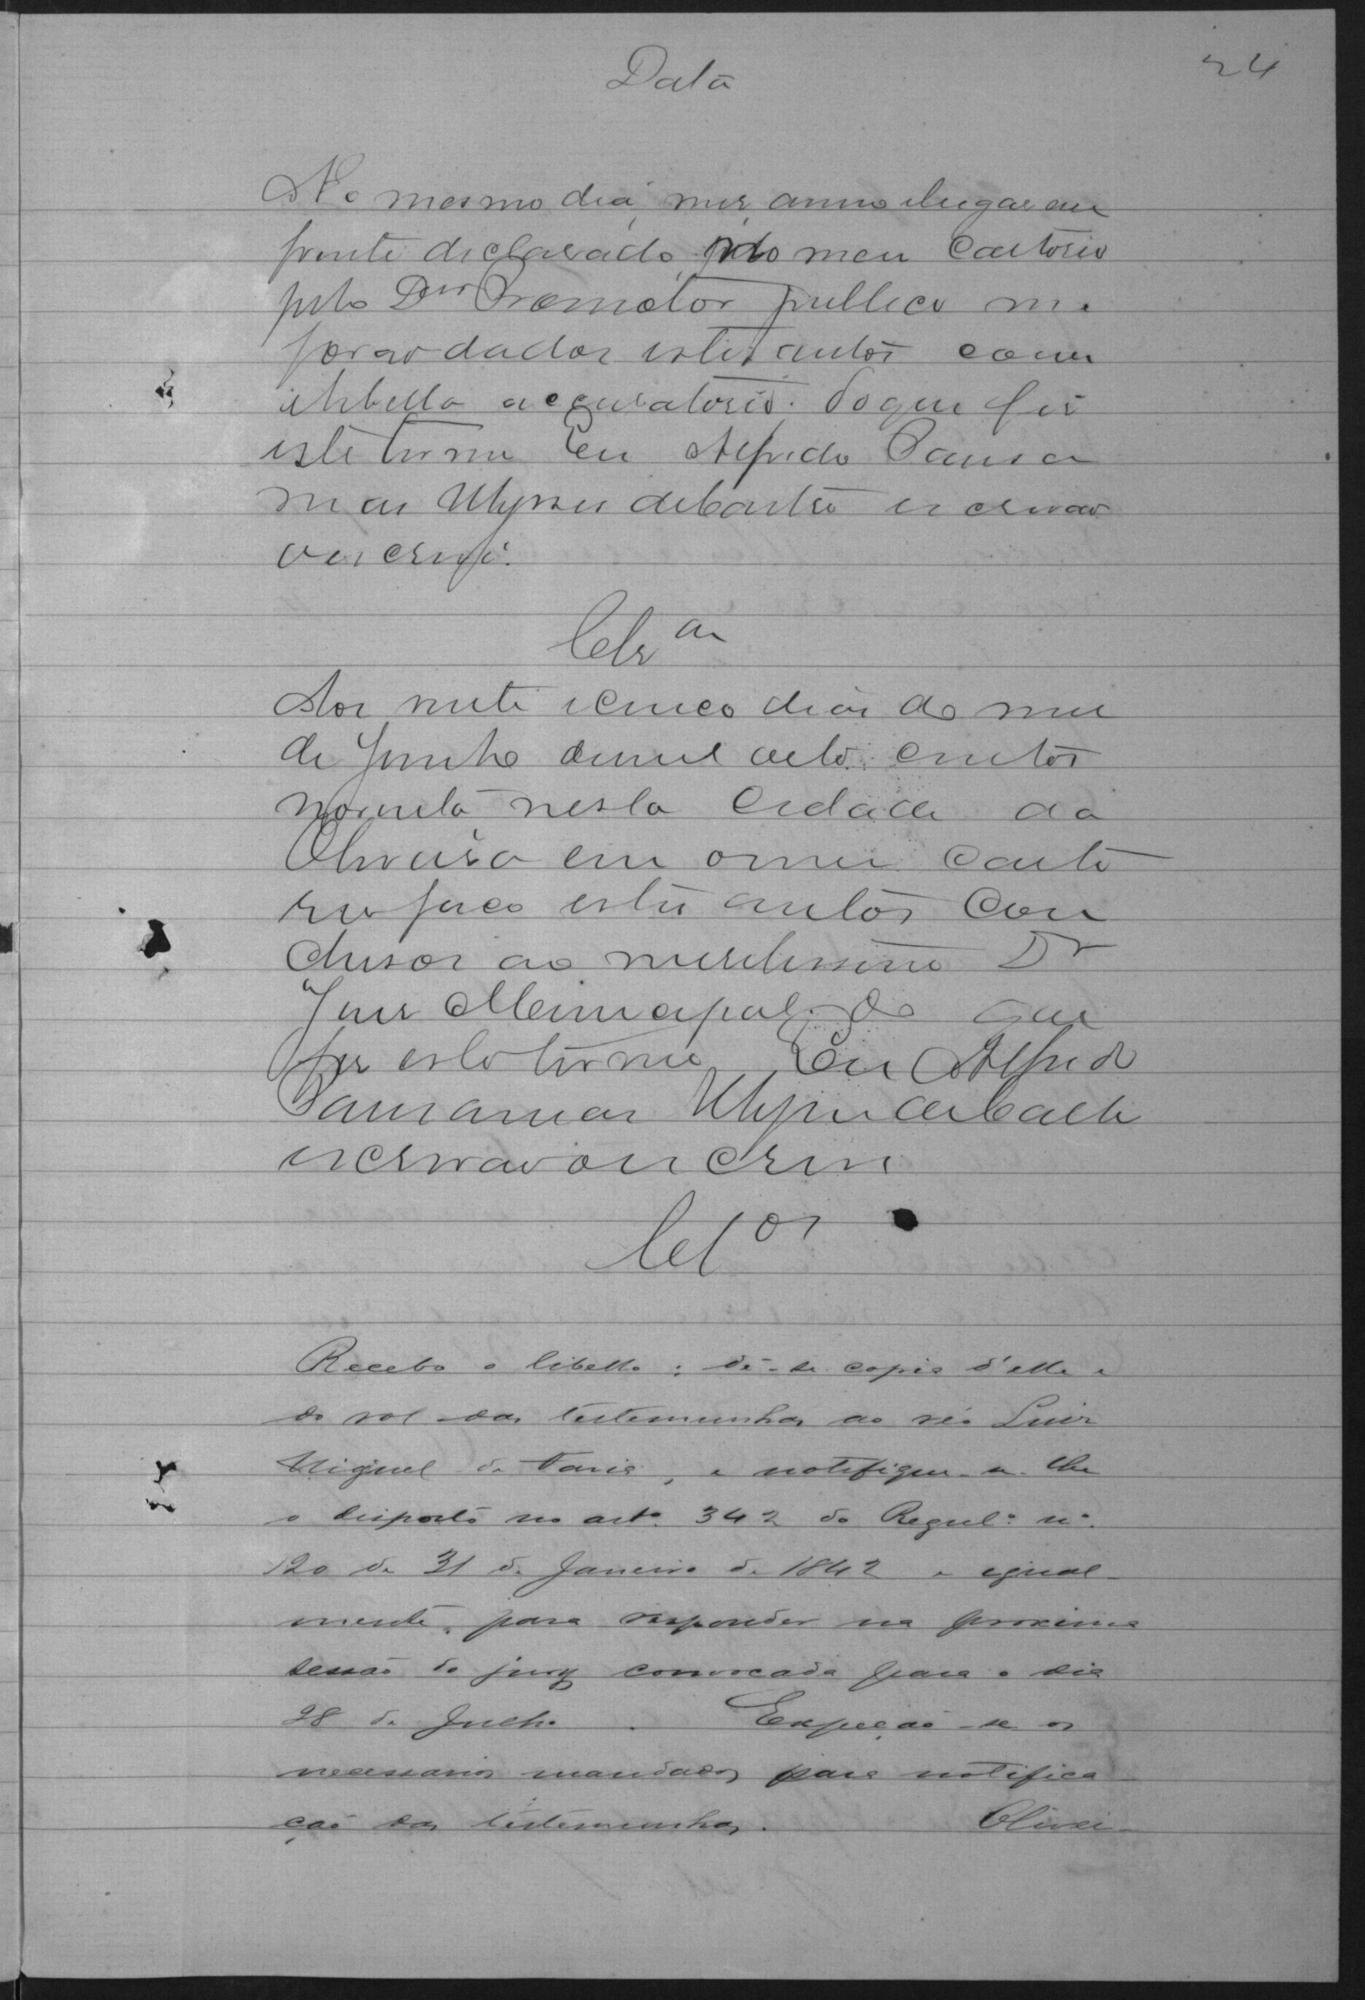 Data
24
No mesmo dia, mes, anno e lugar em
frente declarado, no meu Cartorio
pelo Dor Promotor publico me
forão dados estes autos com
o libello accusatorio. Do que fis
este termo Eu Alfredo Pausa
nias Ulysses de Castro escrivão
o escrevi.
Clsam
Aos vinte e cinco dias do mes
de Junho de mil oito centos
noventa nesta Cidade da
Oliveira em o meu Carto
rio faço estes autos Con
clusos ao meretissimo Dr
Juis Municipal. Do que
fis este termo. Eu Alfredo
Pausanias Ulysses de Castro
escrivão o escrevi
Clos
Recebo o libello; dê-se copia d'elle e
do rol das testemunhas ao réo Luiz
Miguel de Faria, e notifique-se-lhe
o disposto no arto 342 do Regul.º nº.
120 de 31 de Janeiro de 1842 e igual-
mente, para responder na proxima
sessão do jury convocada para o dia
28 de Julho. Expeção-se os
necessarios mandados para notifica-
ção das testemunhas. Olivei-